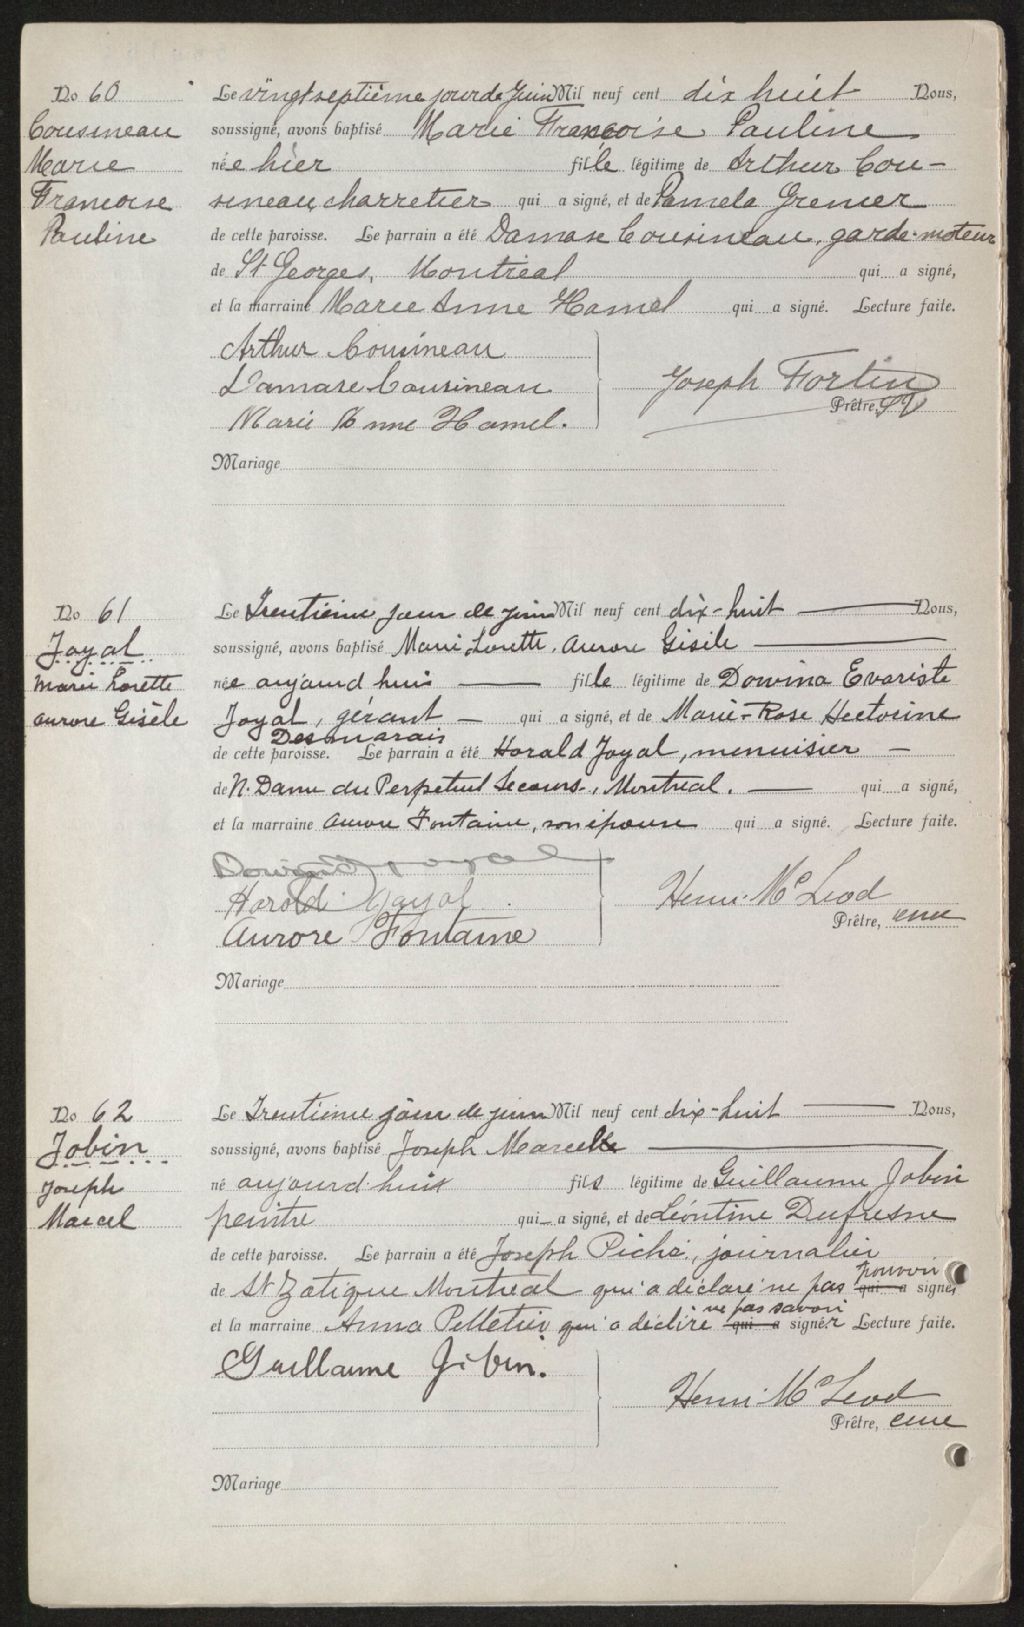 No 60
Cousineau
Marie
Francoise
Pauline
Le vingt septième jour de Juin Mil neuf cent dix huit Nous,
soussigné, avons baptisé Marie Francoise Pauline
née hier fille légitime de Arthur Cou-
sineau, charretier qui a signé, et de Pamela Grenier
de cette paroisse. Le parrain a été Damase Cousineau, garde-moteur
de St Georges, Montreal qui a signé,
et la marraine Marie Anne Hamel qui a signé. Lecture faite.
Arthur Cousineau
Damase Cousineau
Marie Anne Hamel.
Joseph Fortin
Prêtre,
Mariage
No 61
Joyal
Marie Lorette
Aurore Gisèle
Le Trentième jour de juin Mil neuf cent dix-huit Nous,
soussigné, avons baptisé Marie Lorette, Aurore Gisèle
née aujourd'hui fille légitime de Dowina Evariste
Joyal, gérant qui a signé, et de Marie-Rose Hectorine
Desmarais
de cette paroisse. Le parrain a été Harold Joyal, menuisier
de N. Dame du Perpetuel Secours, Montreal. qui a signé,
et la marraine Aurore Fontaine, son épouse qui a signé. Lecture faite.
Joyal
Harold Joyal
Aurore Fontaine
Henri McLeod
Prêtre, curé
Mariage
No 62
Jobin
Joseph
Marcel
Le Trentième jour de juin Mil neuf cent dix-huit Nous,
soussigné, avons baptisé Joseph Marcel
né aujourd'hui fils légitime de Guillaume Jobin
peintre qui a signé, et de Léontine Dufresne
de cette paroisse. Le parrain a été Joseph Piché, journalier
de St Zotique Montreal qui a déclaré ne pas pouvoir qui a signer
et la marraine Anna Pelletier qui a déclaré ne pas savoir qui a signer Lecture faite.
Guillaume Jobin.
Henri McLeod
Prêtre, curé
Mariage